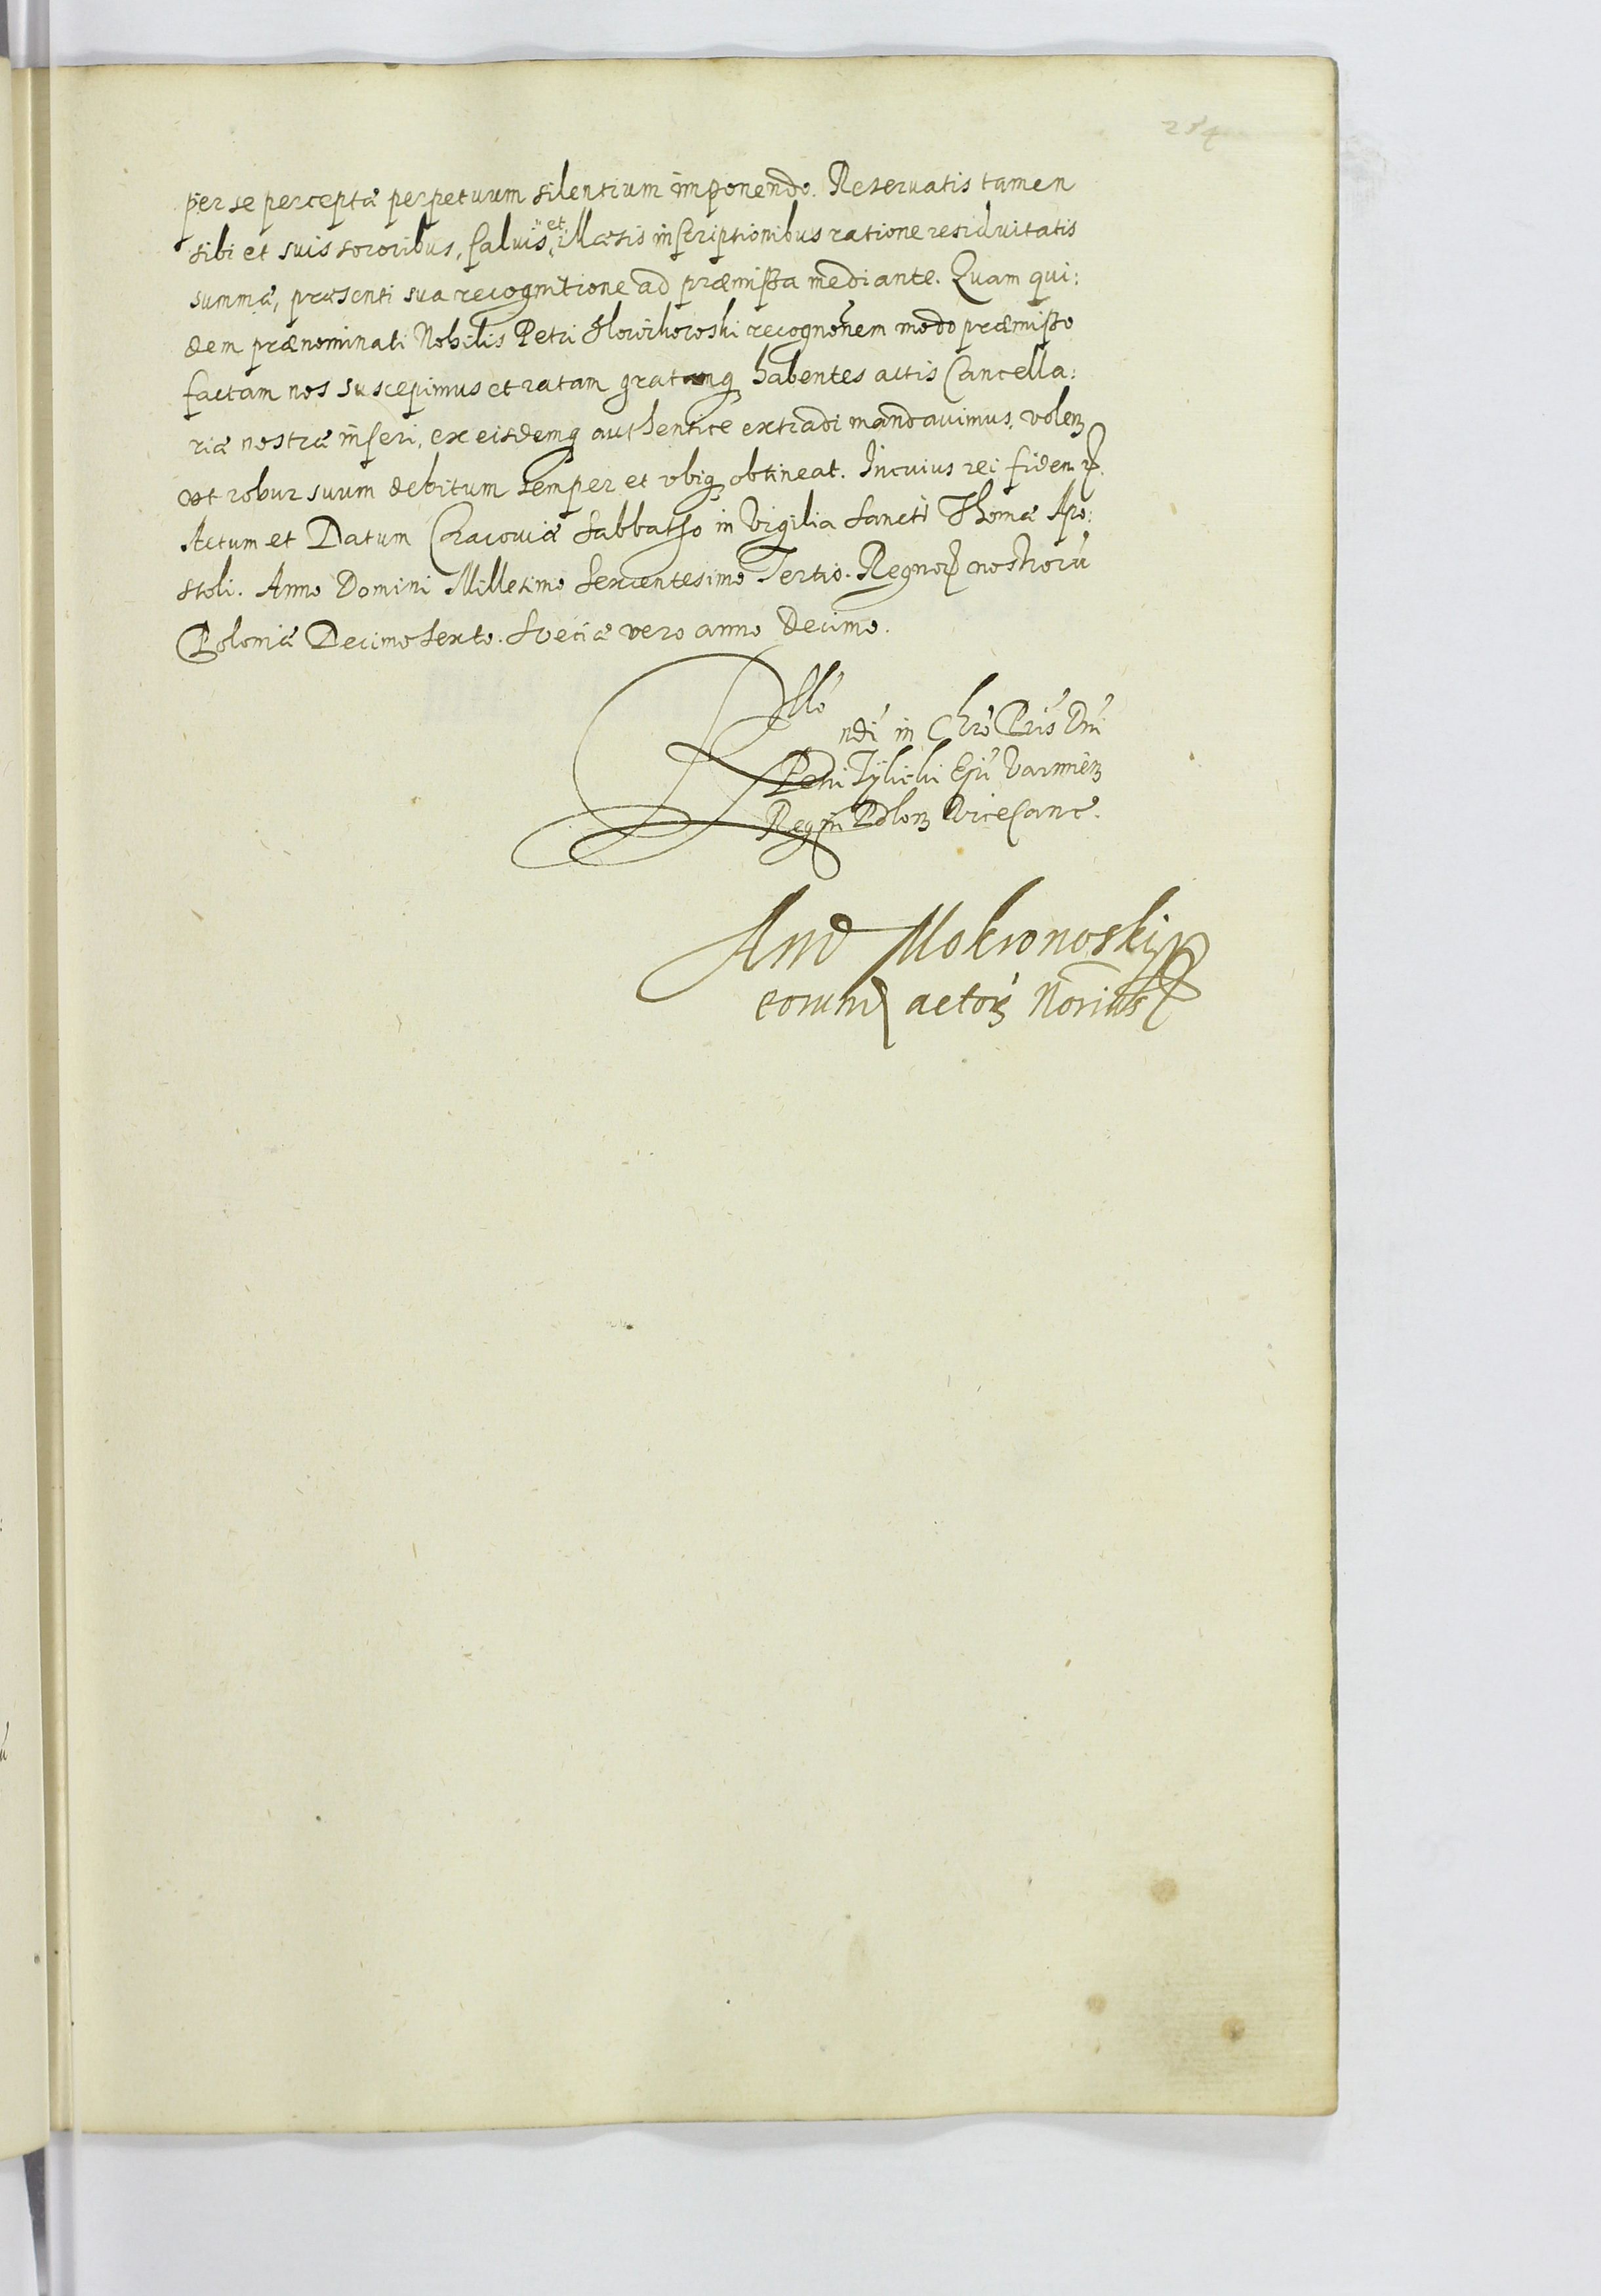 234
per se perceptæ perpetuum silentium imponendo. Reservatis tamen
sibi et suis sororibus, salvis, et illæsis inscriptionibus ratione residuitatis
summæ, præsenti sua recognitione ad præmissa mediante. Quam qui:
dem prænominati Nobilis Petri recognõnem modo præmisso
factam nos suscepimus et ratam gratamq habentes actis Cancella:
riæ nostræ inseri, ex eisdemq authentice extradi mandavimus, volen
ut robur suum debitum semper et ubiq obtineat. In cuius rei fidem
Actum et Datum Cracoviæ Sabbatho in Vigilia Sancti Thomæ Apo:
stoli. Anno Domini Millesimo Sexcentesimo Tertio. Regnor nostrorũ
Poloniæ Decimo Sexto. Sveciæ vero anno Decimo.
ndi in Chro Pris Dni
Petri Tylicki Epi Varmien
Regni Polon ViceCanc.
And Mokronoski
eorund actor Norius